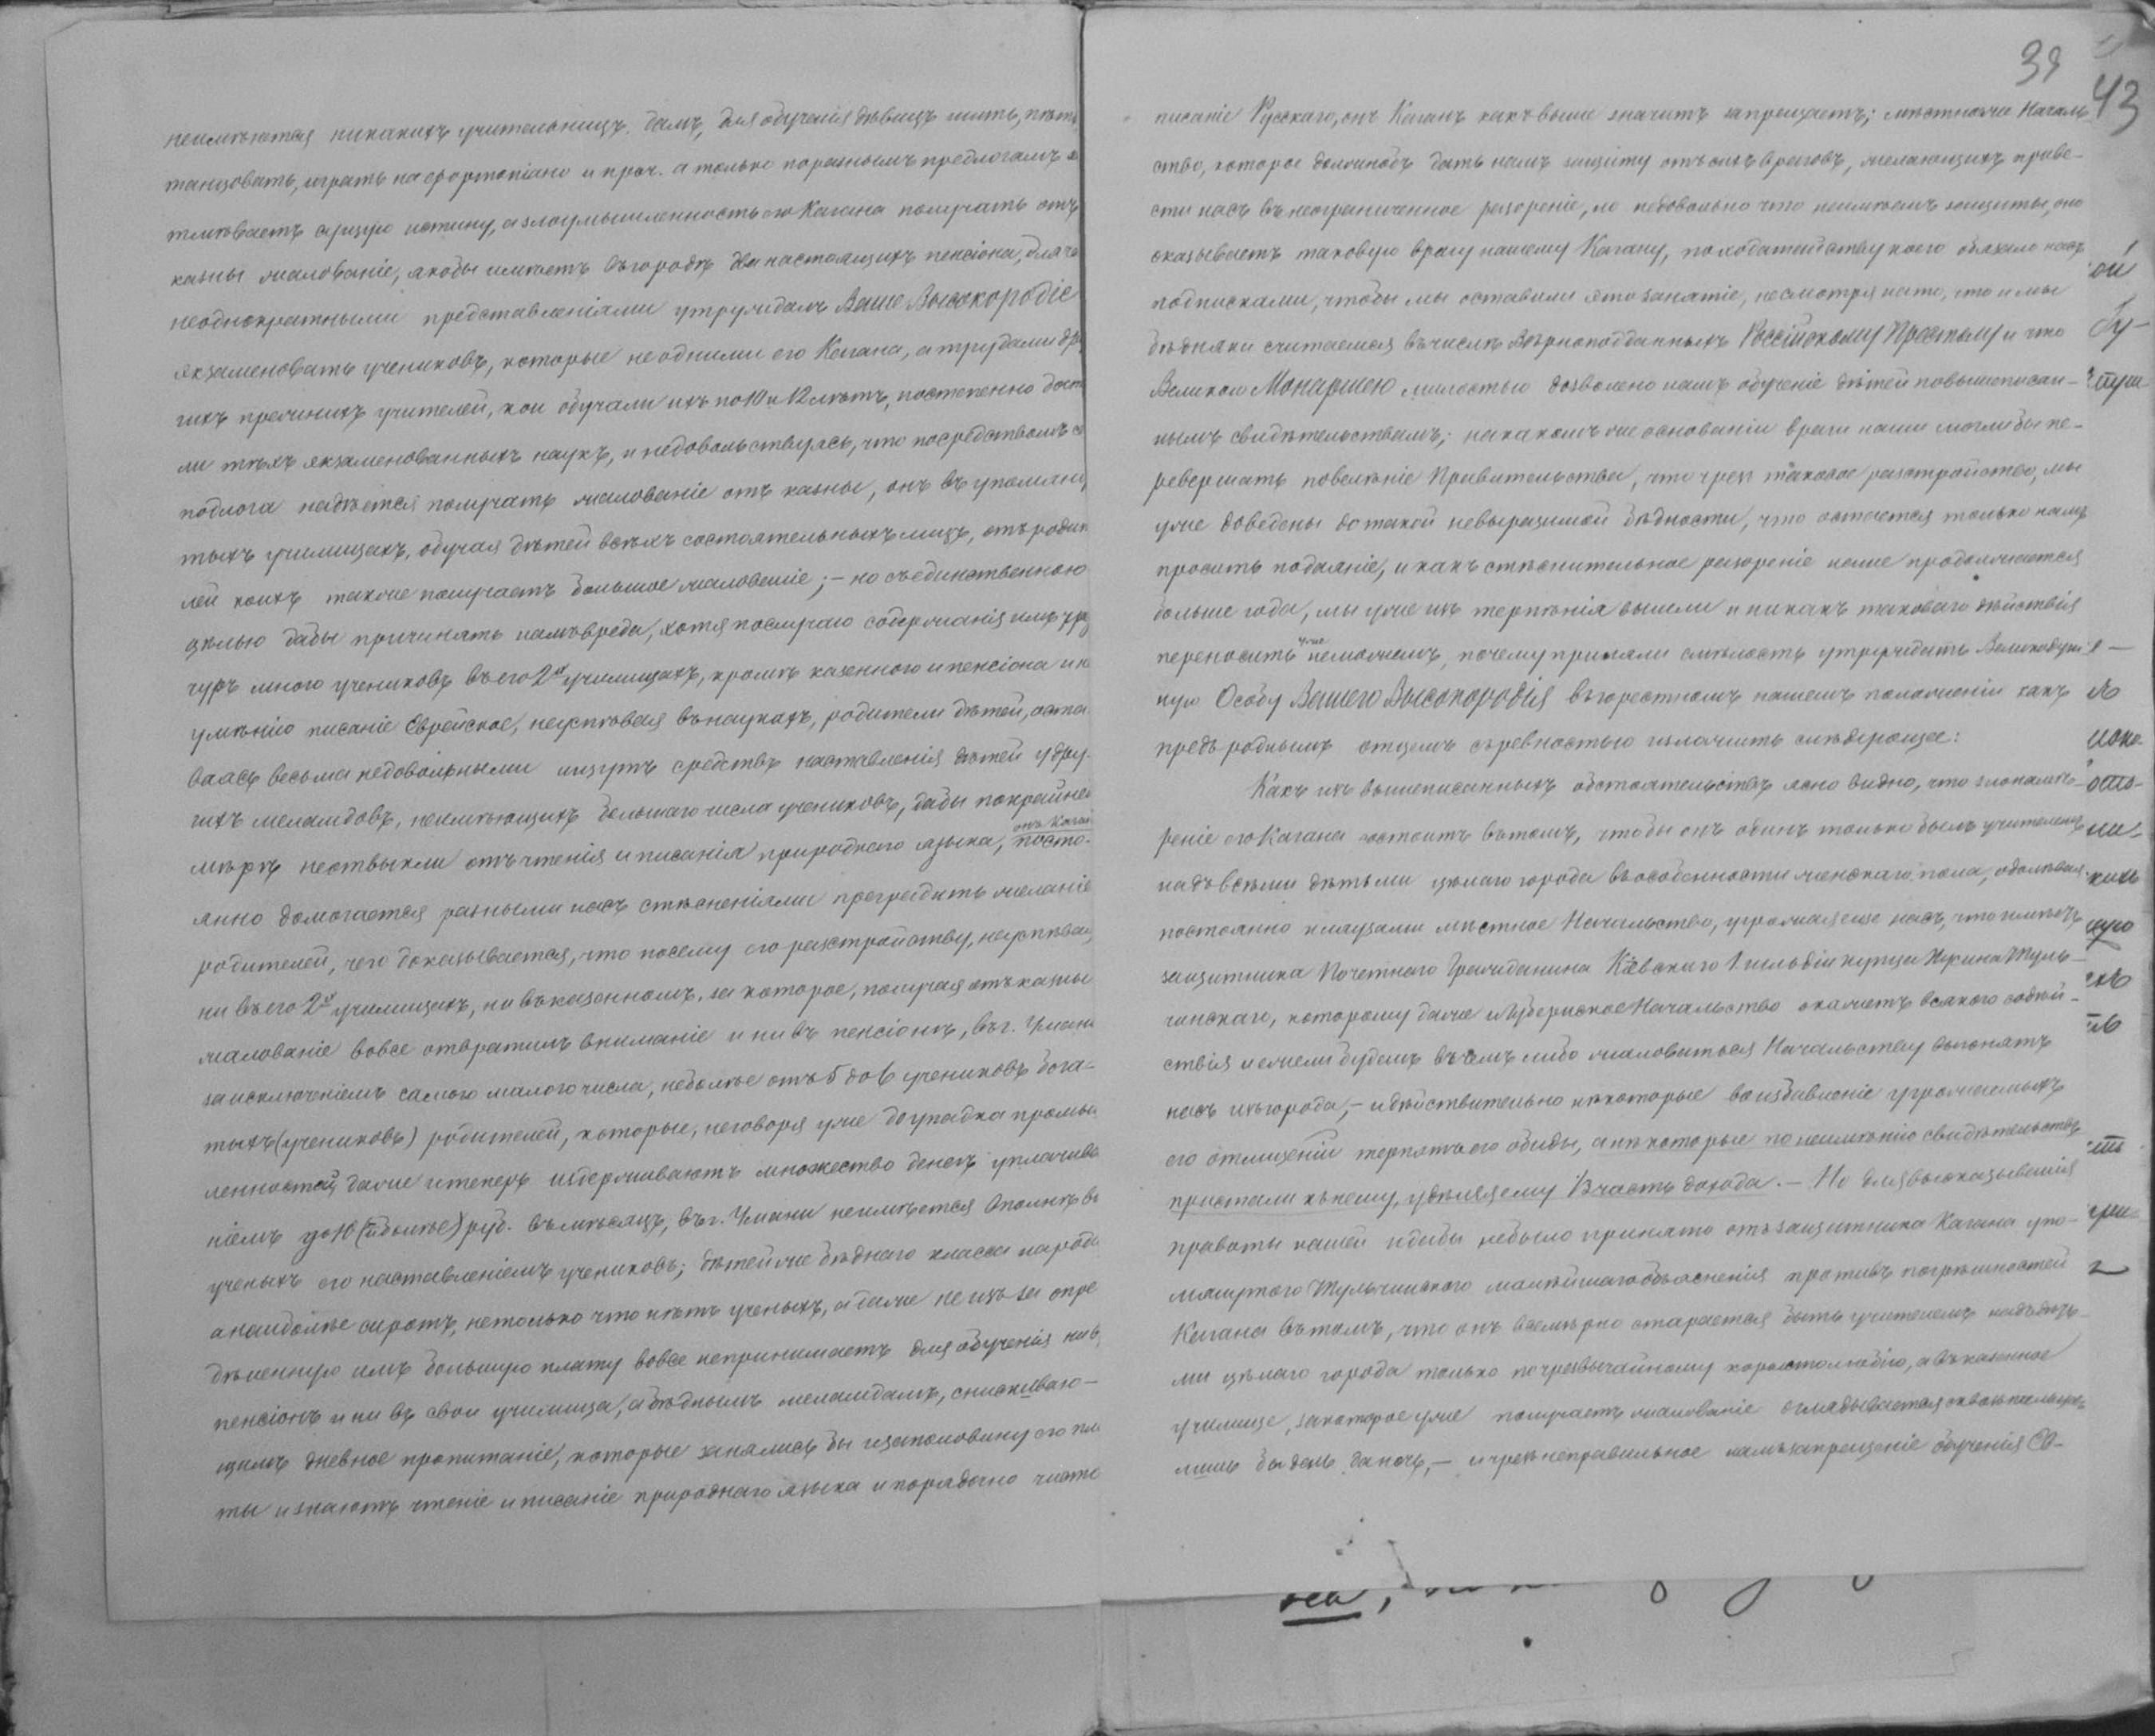 неимѣются никакихъ учительницъ дамъ, для обученія дѣвицъ шить,
танцовать, играть на фортопіано и проч. а только поразнымъ предлогамъ
тмѣваетъ сущую истину, а злоумышленность его Кагана получать отъ
казны жалованіе, якобы имѣетъ въ городѣ два настоящихъ пенсіона, для че
неоднократными представленіями утруждалъ Ваше Высокородіе
экзаменовать учениковъ, которые не одними его Кагана, а трудами дру
гихъ прежнихъ учителей, кои обучали ихъ по 10 и 12 лѣтъ, постепенно дост
ли тѣхъ экзаменованныхъ наукъ, и недовольствуясь, что посредствомъ
подлога надѣется получать жалованіе отъ казны, онъ въ упомяну
тыхъ училищахъ, обучая дѣтей всѣхъ состоятельныхъ лицъ, отъ родит
лей коихъ также получаетъ большое жалованіе; – но съ единственною
цѣлью дабы причинять намъ вреда, хотя послучаю содержанія имъ чрез
чуръ много учениковъ въ его 2х училищахъ, кромѣ казенного и пенсіона и не
умѣнію писаніе Еврейское, неуспѣвая въ наукахъ, родители дѣтей, оста
ваясь весьма недовольными ищутъ средствъ наставленія дѣтей удру-
гихъ меламдовъ, неимѣющихъ большаго числа учениковъ, дабы покрайней
мѣрѣ неотвыкли отъ чтенія и писанія природнаго языка, онъ Каган посто-
янно домогается разными насъ стѣсненіями преградить желаніе
родителей, чего доказывается, что посему его разстройству, неуспѣвая
ни въ его 2х училищахъ, ни въ казенномъ, за которое, получая отъ казны
жалованіе вовсе отвратилъ вниманіе и ни въ пенсіонѣ, въ г. Умани
заисключеніемъ самого малого числа, неболѣе отъ 5 до 6 учениковъ бога-
тыхъ (учениковъ) родителей, которые, неговоря уже до упадка промыш
ленностей, даже итеперь издерживаютъ множество денегъ уплачива
ніемъ по 10 (и болѣе) руб. въ мѣсяцъ, въ г. Умани неимѣется вполнѣ
ученыхъ его наставленіемъ учениковъ; дѣтей же бѣднаго класса народа
а наиболѣе сиротъ, нетолько что нѣтъ ученыхъ, а даже не изъ за опре
дѣленную имъ большую плату вовсе непринимаетъ для обученія ни въ
пенсіонъ и ни въ свои училища, а бѣднымъ меламдамъ, снискиваю-
щимъ дневное пропитаніе, которые занялись бы изаполовину его пла
ты и знаютъ чтеніе и писаніе природнаго языка и порядочно чисто
39
43
писаніе Русскаго, онъ Каганъ какъ выше значитъ запрещаетъ; мѣстноже Началь-
ство, которое должнобъ дать намъ защиту отъ сихъ враговъ, желающихъ приве-
сти насъ въ неограниченное разореніе, но недовольно что неимѣемъ защиты, оно
оказываетъ таковую врагу нашему Кагану, походатайству коего обязало насъ
подписками, чтобы мы оставили это занятіе, несмотря нато, что и мы
бѣдняки считаемся въ числѣ Вѣрноподданныхъ Россійскому Престолу и что
Великою Монаршею милостью дозволено намъ обученіе дѣтей повышеписан-
нымъ свидѣтельствамъ; накакомъ же основаніи враги наши моглибы пе-
ревершать повелѣніе Правительства, что чрезъ таковое разстройство, мы
уже доведены до такой невыразимой бѣдности, что остается только намъ
просить подаяніе, и какъ стѣснительное разореніе наше продолжается
больше года, мы уже изъ терпѣнія вышли и никакъ таковаго дѣйствія
переносить уже неможемъ, почему приняли смѣлость утруждать Великодуш
ную Особу Вашего Высокородія въ горестномъ нашемъ положеніи какъ
предъ роднымъ отцемъ съ ревностью изложить слѣдующее:
Какъ изъ вышеписанныхъ обстоятельствъ ясно видно, что злонамѣ-
реніе его Кагана состоитъ въ томъ, чтобы онъ одинъ только былъ учителемъ
надъ всѣми дѣтьми цѣлаго города въ особенности женскаго пола, одолѣвая
постоянно кляузами мѣстное Начальство, угрожая еще насъ, что имѣетъ
защитника Почетнаго Гражданина Кіевскаго 1 гильдіи купца Тульчинскаго, которому даже и Губернское Начальство окажетъ всякого содѣй-
ствія и ежели будемъ въ чемъ либо жаловаться Начальству выгонятъ
насъ изъ города, – и дѣйствительно нѣкоторые во избавленіе угрожаемыхъ
его отмщеній терпятъ его обиды, а нѣкоторые по неимѣнію свидѣтельствъ
пристали къ нему, удѣляещему 1/3 часть дохода. – Но для высказыванія
правоты нашей и дабы небыло принято отъ защитника Кагана упо-
мянутого Тульчинского малѣйшаго объясненія противъ погрѣшностей
Кагана въ томъ, что онъ всемѣрно старается быть учителемъ надъ дѣть-
ми цѣлаго города только почрезвычайному корыстолюбію, а въ казенное
училище, за которое уже получаетъ жалованіе оглядывается сквозь пальцы
лишь бы день да ночь, – и чрезъ неправильное намъ запрещеніе обученія